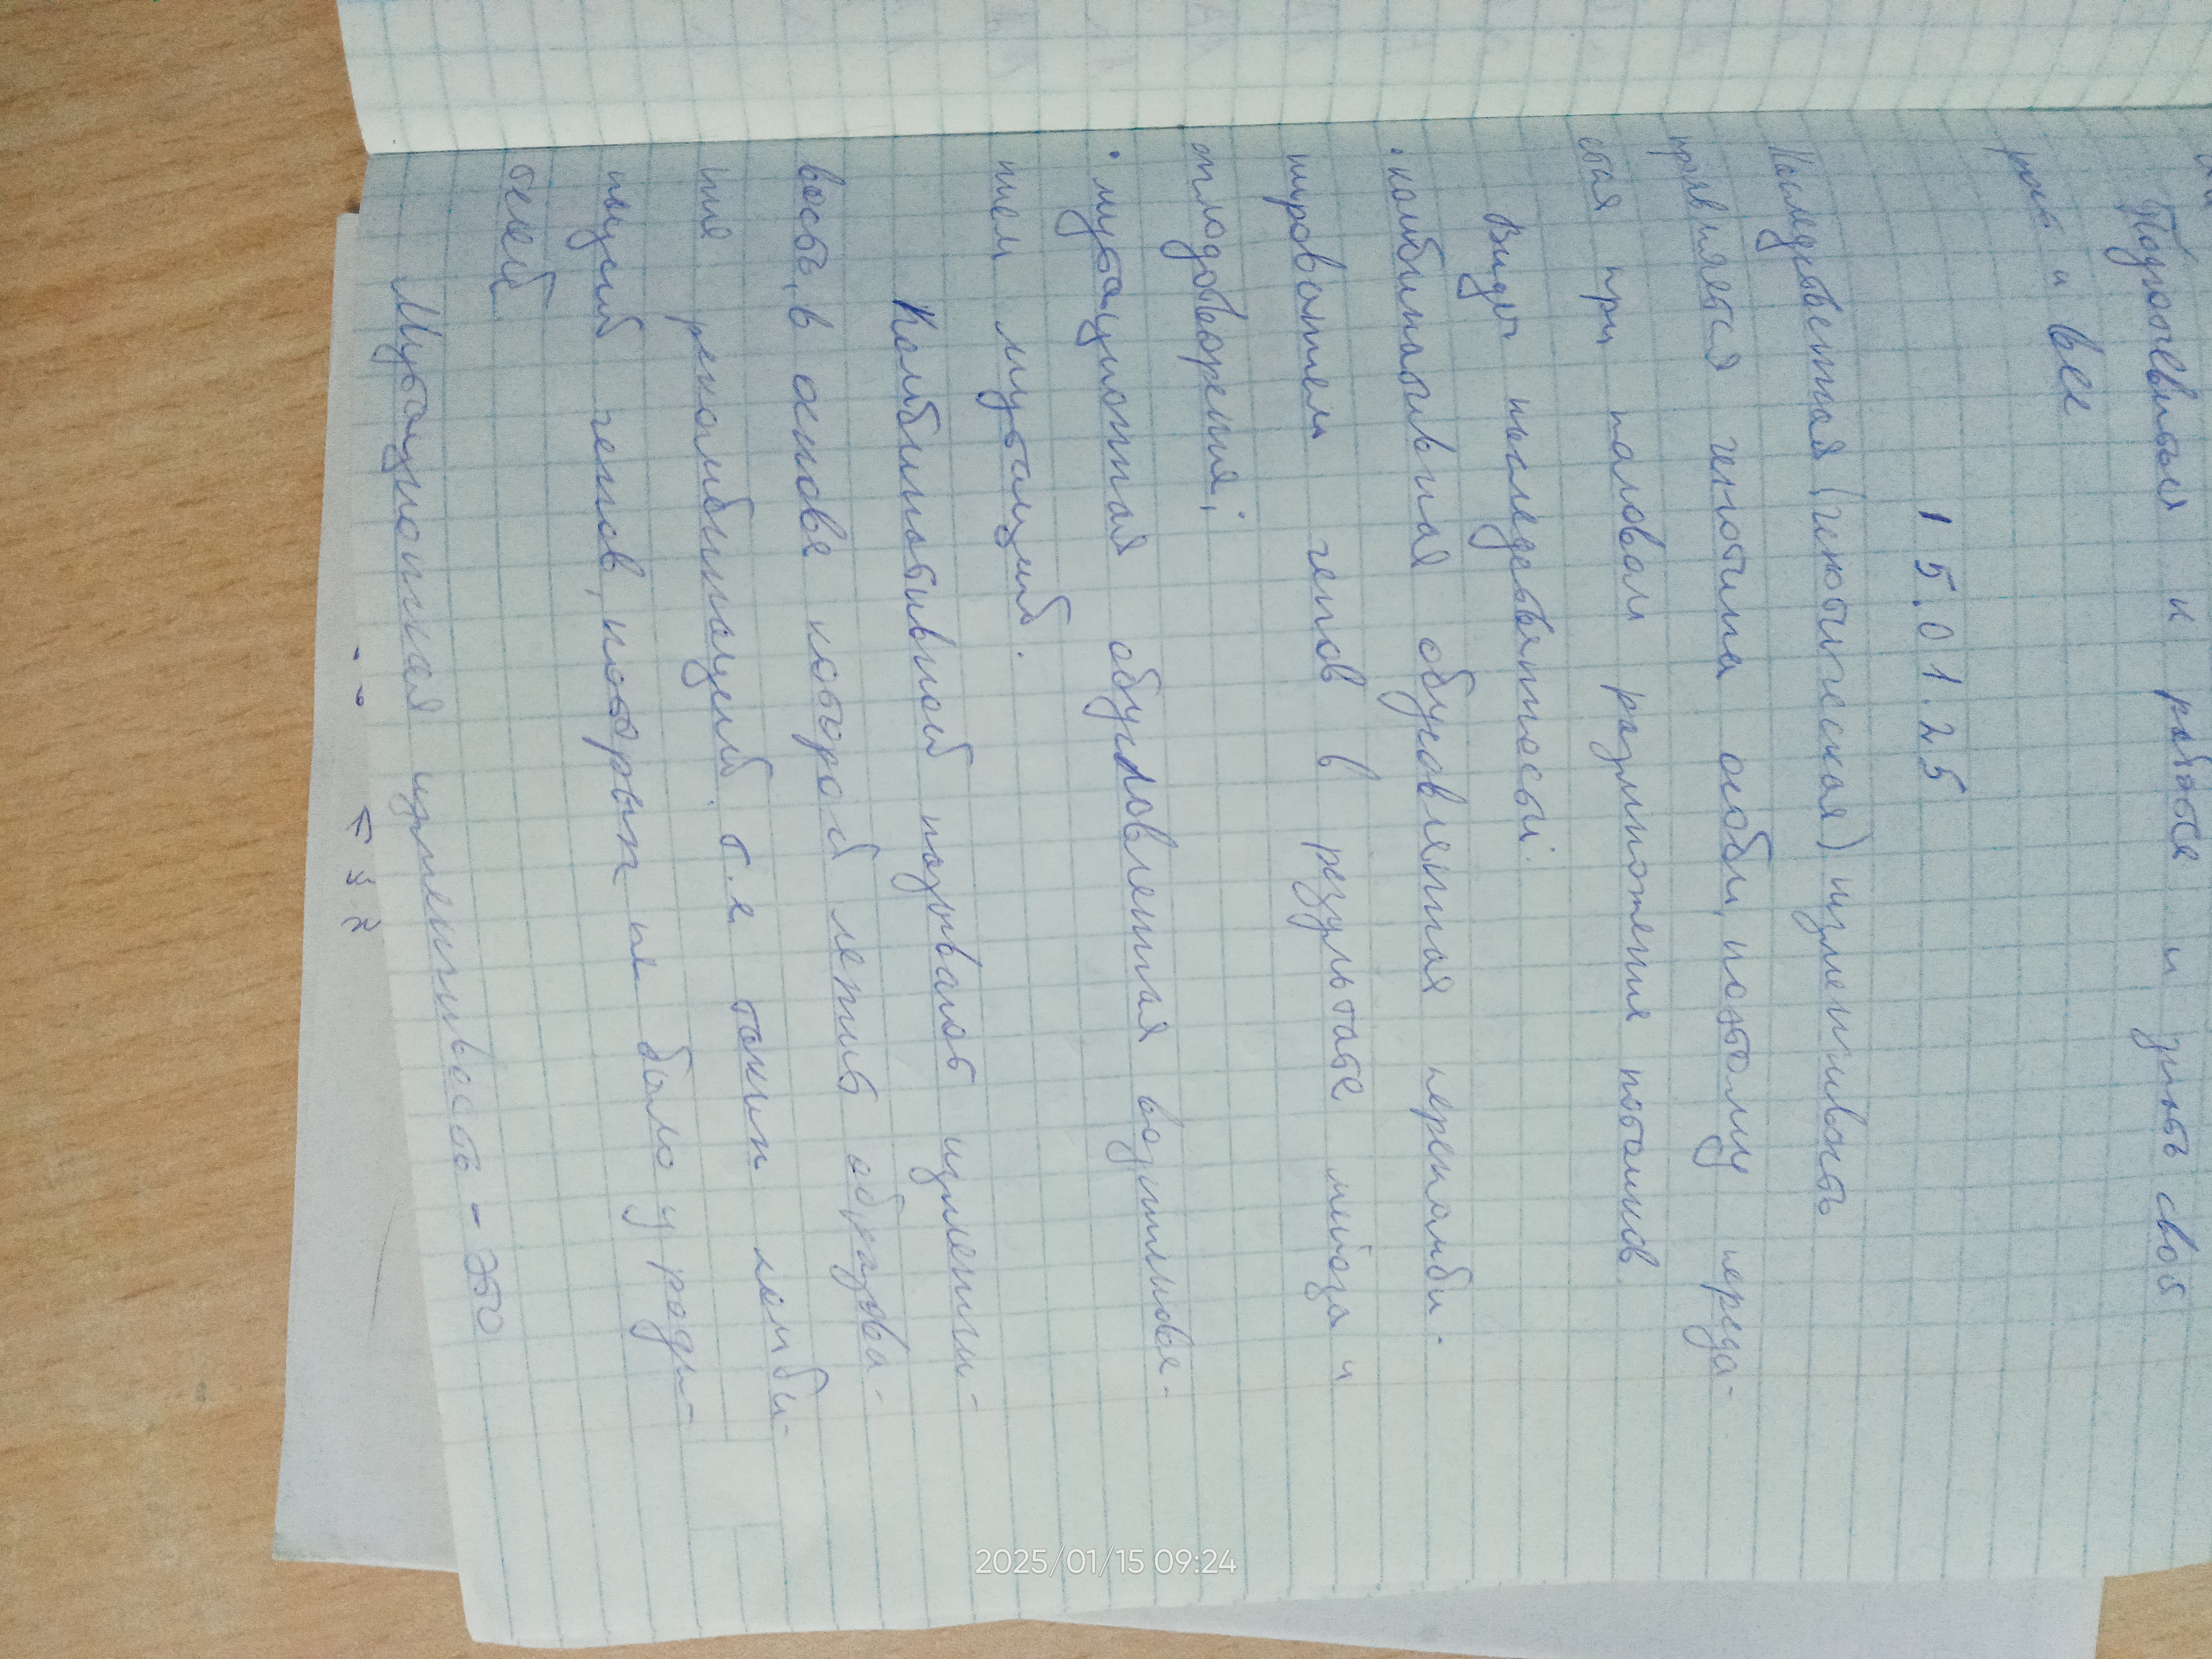 Подготовиться к работе и знать своб
рань и вее
15.01.25
Наследственная (генотипическая) изменчивость
проявляется генотипа особи, поэтому переда-
ётся при половом размножения потомков
Виды наследственности:
• комбинативная обусловленная перекомби-
нированием генов в результате мейоза и
оплодотворения;
• мутационная обусловленная возникнове-
нием мутаций.
Комбинативной называют изменчи-
вость, в основе которой лежит образова-
ния рекомбинаций. т.е таких комби-
наций генов, которых не было у роди-
телей
Мутационная изменчивость - это
2025/01/15 09:24